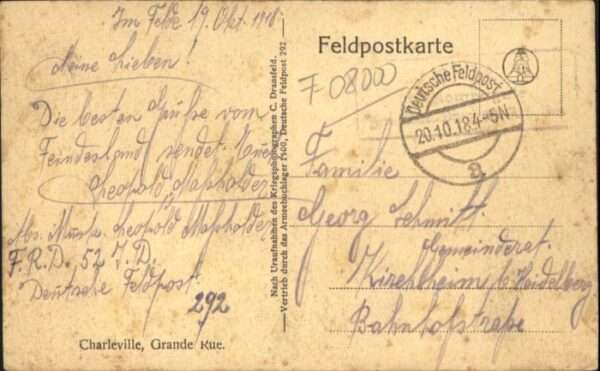 Im Felde 19. Okt. 1918
Meine Lieben!
Die besten Grüße vom
Feindesland sendet Euch
Leopold
Abs. Leopold
F.R.D. 52 I.D.
Deutsche Feldpost
292
Charleville, Grande Rue.
Nach Uraufnahmen des Kriegsphotographen C. Dransfeld.
Vertrieb durch das Armeebuchlager 7400, Deutsche Feldpost 292
Feldpostkarte
F 08000
Deutsche Feldpost
20.10.18 4-5N
a
Familie
Georg Schmitt.
Gemeinderat.
Kirchheim b. Heidelberg
Bahnhofstraße